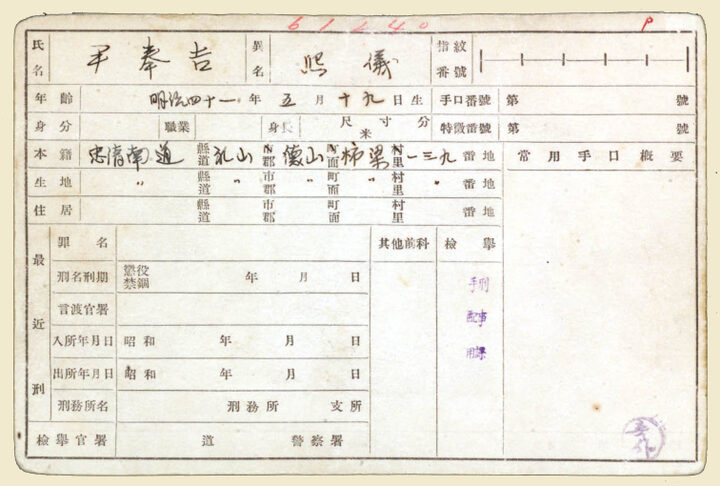 61240 P
氏名 尹奉吉 異名 熙儀 指紋番號
年齡 明治四十一年五月十九日生 手口番號 第 號
身分 職業 身長 尺寸分 米 特徵番號 第 號
本籍 忠清南道 縣道 礼山 市郡 德山 町面 柿梁 村里 一三九 番地 常用手口概要
生地 〃 縣道 〃 市郡 〃 町面 〃 村里 〃 番地
住居 縣道 市郡 町面 村里 番地
最近刑 罪名 其他前科 檢擧
刑名刑期 懲役 禁錮 年 月 日
言渡官署
入所年月日 昭和 年 月 日
出所年月日 昭和 年 月 日
刑務所名 刑務所 支所
檢擧官署 道 警察署
刑事課
手配用